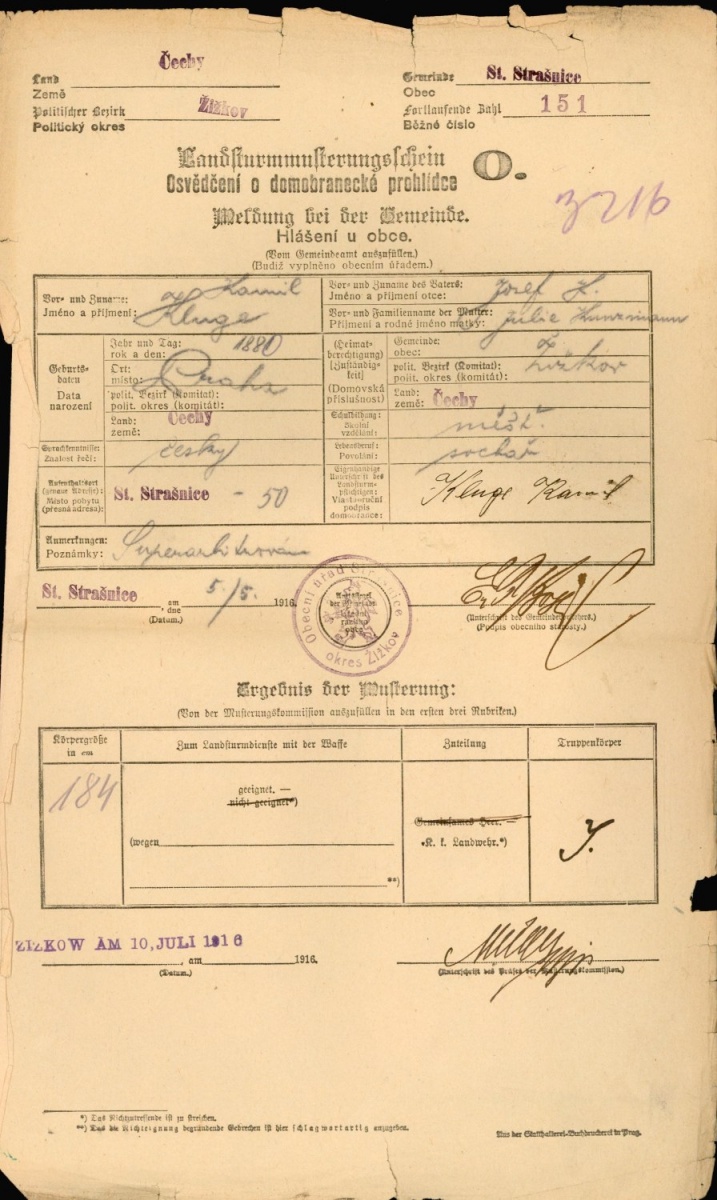 Land
Země
Čechy
Politischer Bezirk
Politický okres
Žižkov
Gemeinde
Obec
St. Strašnice
Fortlaufende Zahl
Běžné číslo
151
Landsturmmusterungsschein
Osvědčení o domobranecké prohlídce
O.
3216
Meldung bei der Gemeinde.
Hlášení u obce.
(Vom Gemeindeamt auszufüllen.)
(Budiž vyplněno obecním úřadem.)
Vor- und Zuname:
Jméno a příjmení:
Kamil
Kluge
Vor- und Zuname des Vaters:
Jméno a příjmení otce:
Josef K.
Vor- und Familienname der Mutter:
Příjmení a rodné jméno matky:
Julie
Geburts-
daten
Data
narození
Jahr und Tag:
rok a den:
1880
Ort:
místo:
Praha
polit. Bezirk (Komitat):
polit. okres (komitát):
Land:
země:
Čechy
(Heimat-
berechtigung)
[Zuständig-
keit]
(Domovská
příslušnost)
Gemeinde:
obec:
Žižkov
polit. Bezirk (Komitat):
polit. okres (komitát):
Land:
země:
Čechy
Sprachkenntnisse:
Znalost řečí:
česky
Schulbildung:
Školní
vzdělání:
měšť.
Lebensberuf:
Povolání:
sochař
Aufenthaltsort
(genaue Adresse):
Místo pobytu
(přesná adresa):
St. Strašnice - 50
Eigenhändige
Unterschrift des
Landsturm-
pflichtigen:
Vlastnoruční
podpis
domobrance:
Kluge Kamil
Anmerkungen:
Poznámky:
Superarbitrován
St. Strašnice
am
dne
5./5. 1916
(Datum.)
Obecní úřad Strašnice
okres Žižkov
(Unterschrift des Gemeindevorstehers.)
(Podpis obecního starosty.)
Ergebnis der Musterung:
(Von der Musterungskommission auszufüllen in den ersten drei Rubriken.)
Körpergröße
in cm
Zum Landsturmdienste mit der Waffe
Zuteilung
Truppenkörper
184
geeignet. —
nicht geeignet*)
(wegen
**)
Gemeinsames Heer. —
K. k. Landwehr.*)
ZIZKOW AM 10, JULI 1916
, am 1916.
(Datum.)
(Unterschrift des Präses der Musterungskommission.)
*) Das Nichtzutreffende ist zu streichen.
**) Das die Nichteignung begründende Gebrechen ist hier schlagwortartig anzugeben.
Aus der Statthalterei-Buchdruckerei in Prag.